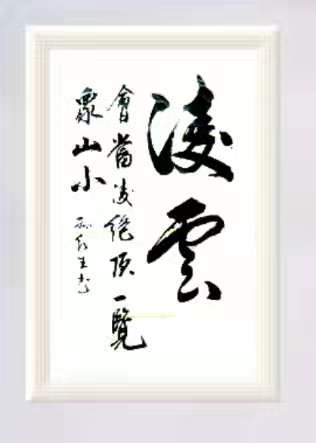 凌雲
會當凌絕頂一覽
衆山小